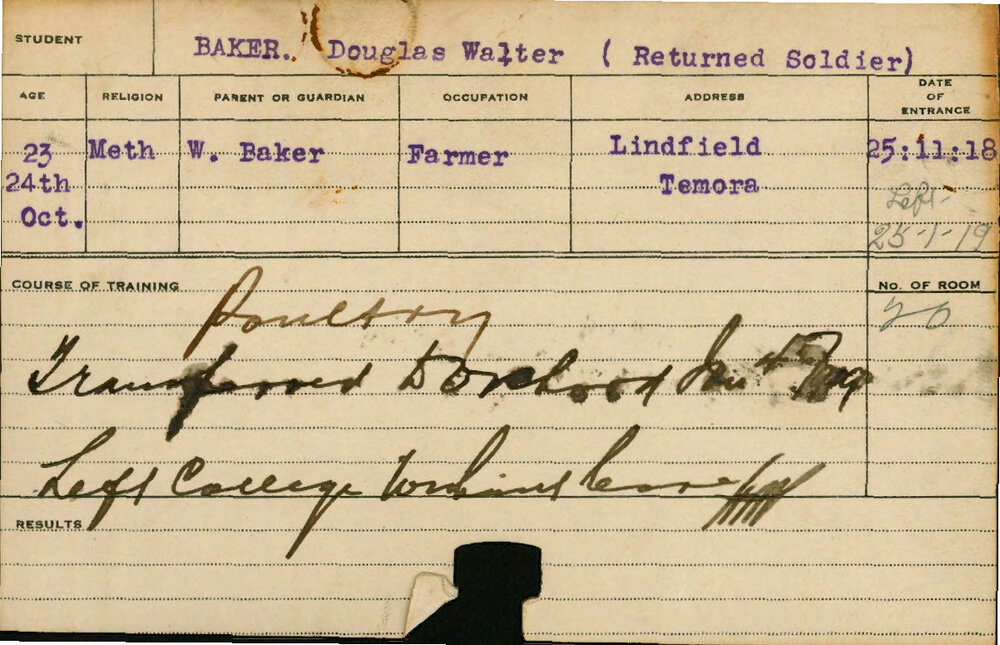 STUDENT BAKER. Douglas Walter ( Returned Soldier)
AGE RELIGION PARENT OR GUARDIAN OCCUPATION ADDRESS DATE OF ENTRANCE
23 Meth W. Baker Farmer Lindfield 25:11:18
24th Temora Left
Oct. 25-1-19
COURSE OF TRAINING No. OF ROOM
Poultry 20
Transferred to Orchard
Left College without leave
RESULTS